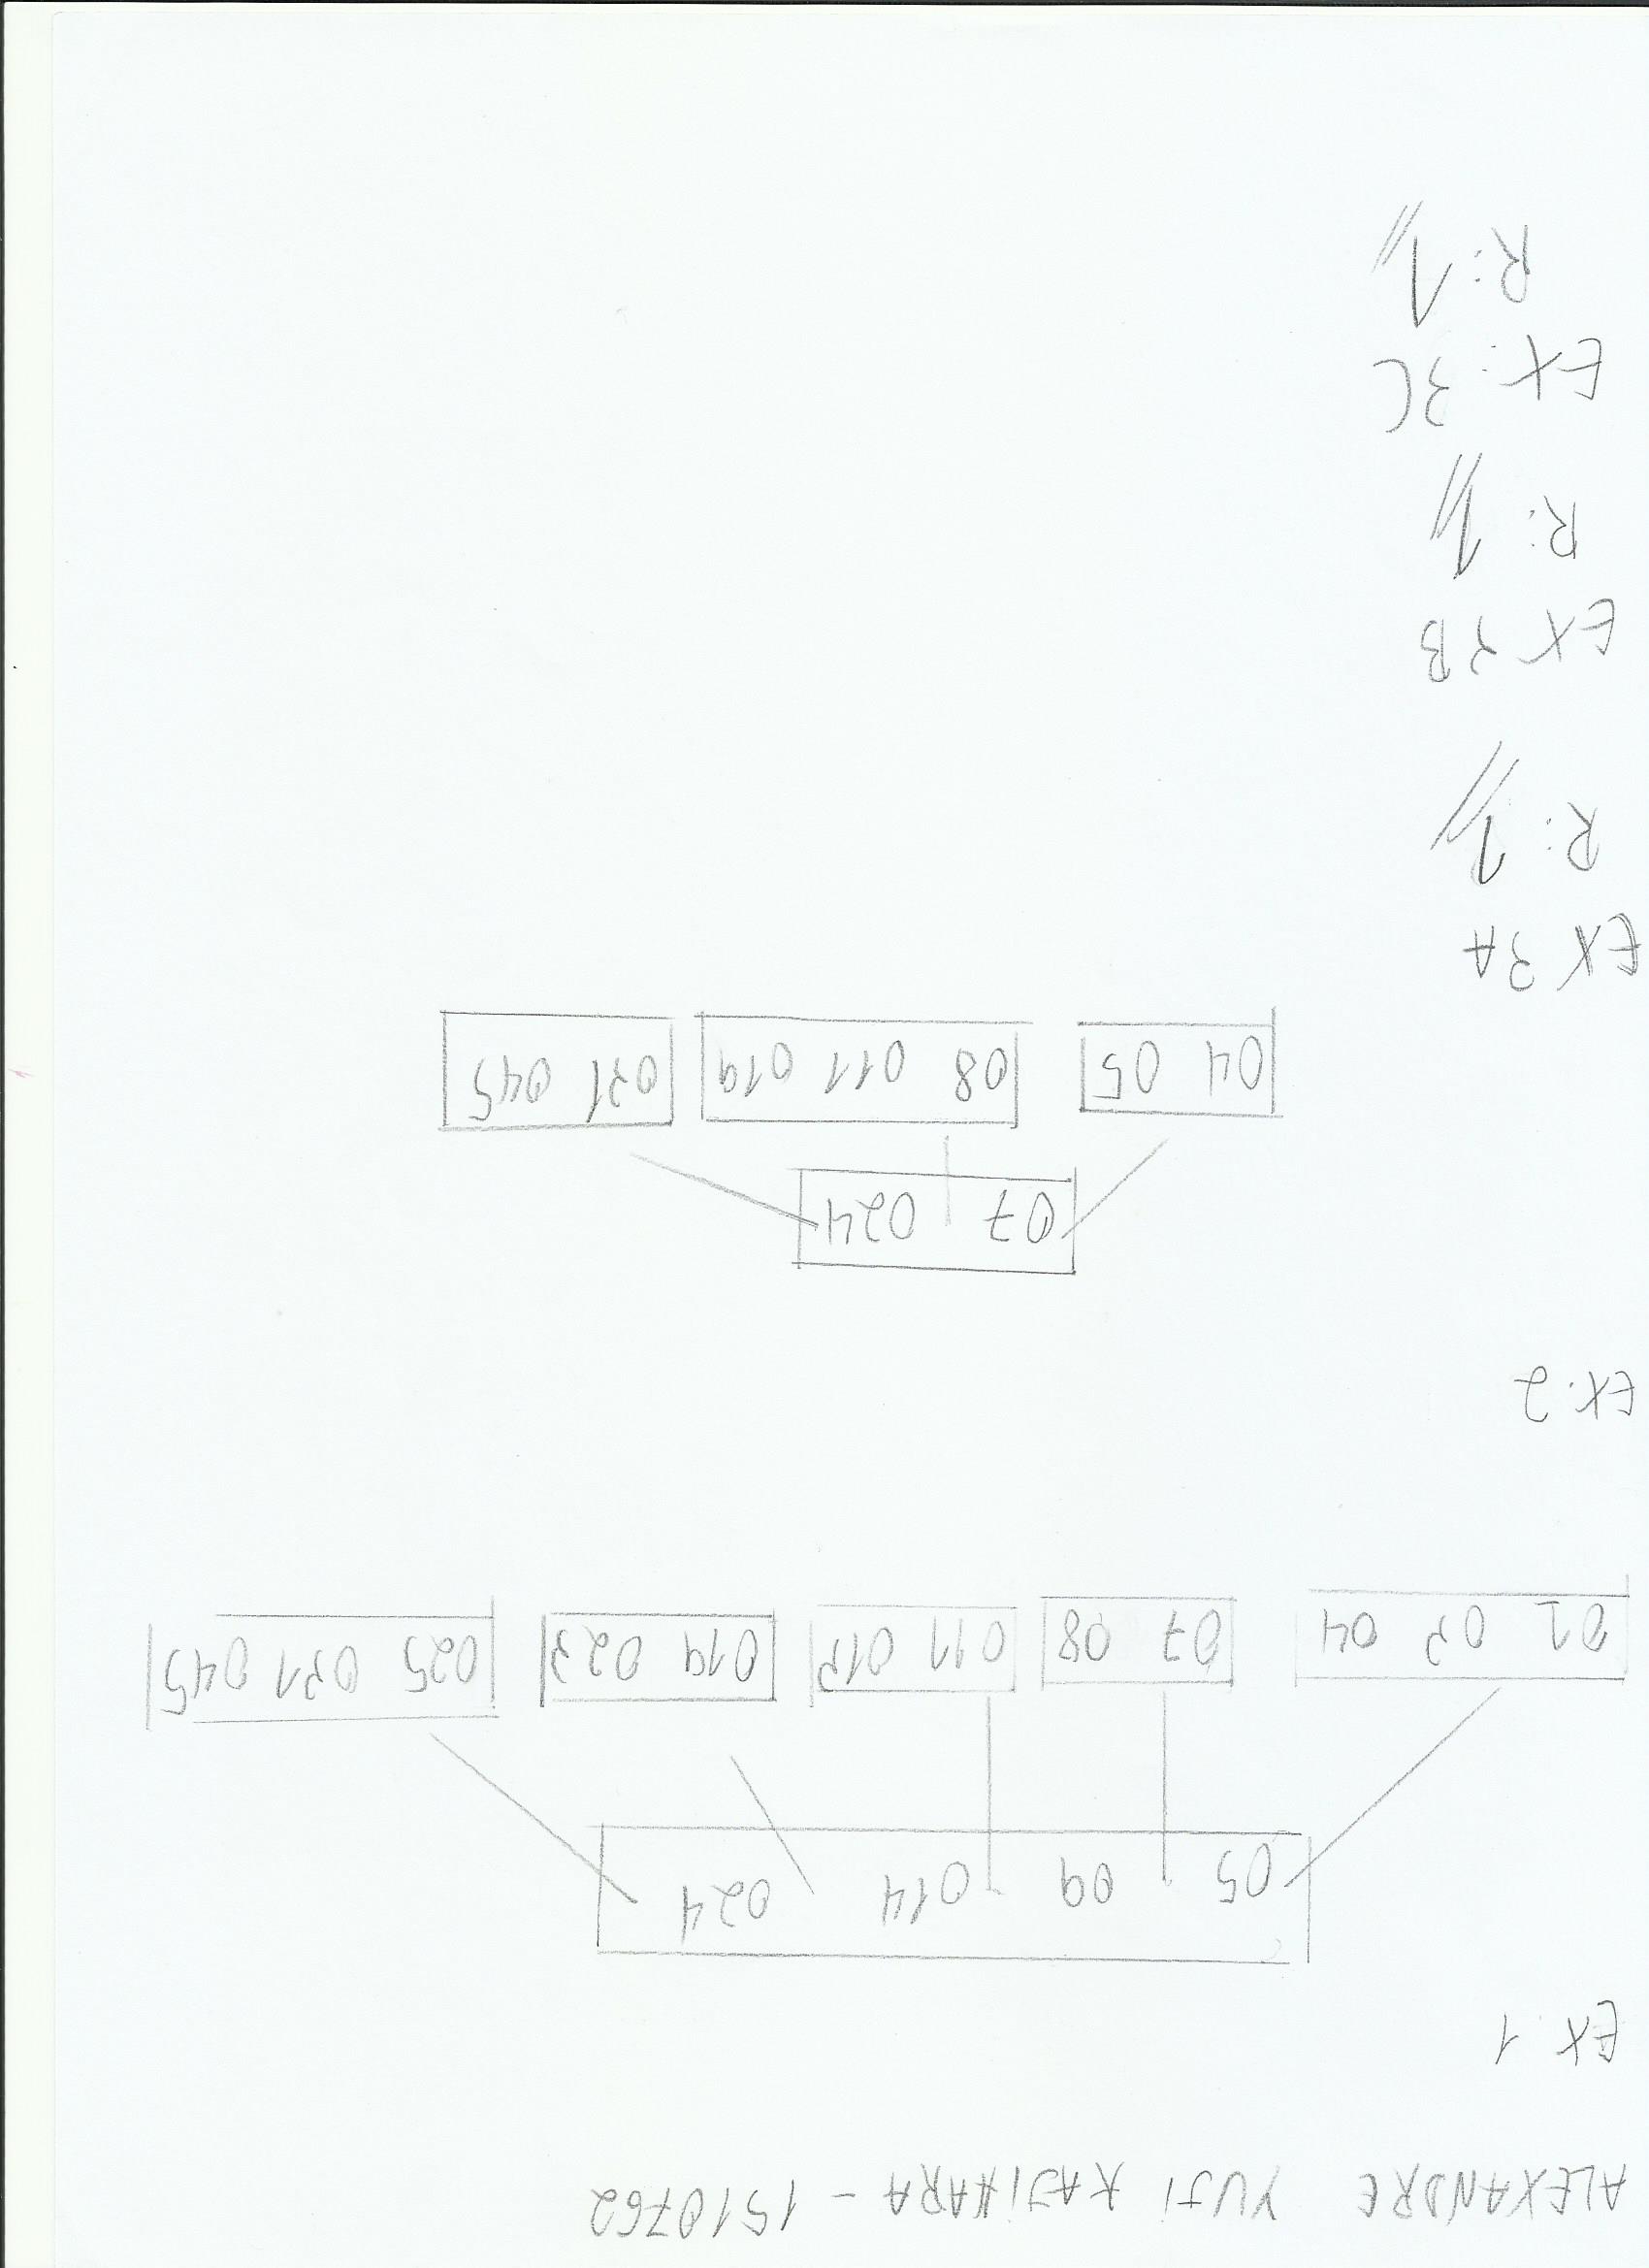 ALEXANDRE YUJI KAJIHARA - 1510762
EX. 1
05 09 014 024
01 03 04 07 08 011 013 019 023 025 031 045
EX. 2
07 024
04 05 08 011 019 031 045
EX 3A
R: 1//
EX 3B
R: 1//
EX: 3C
R: 1//